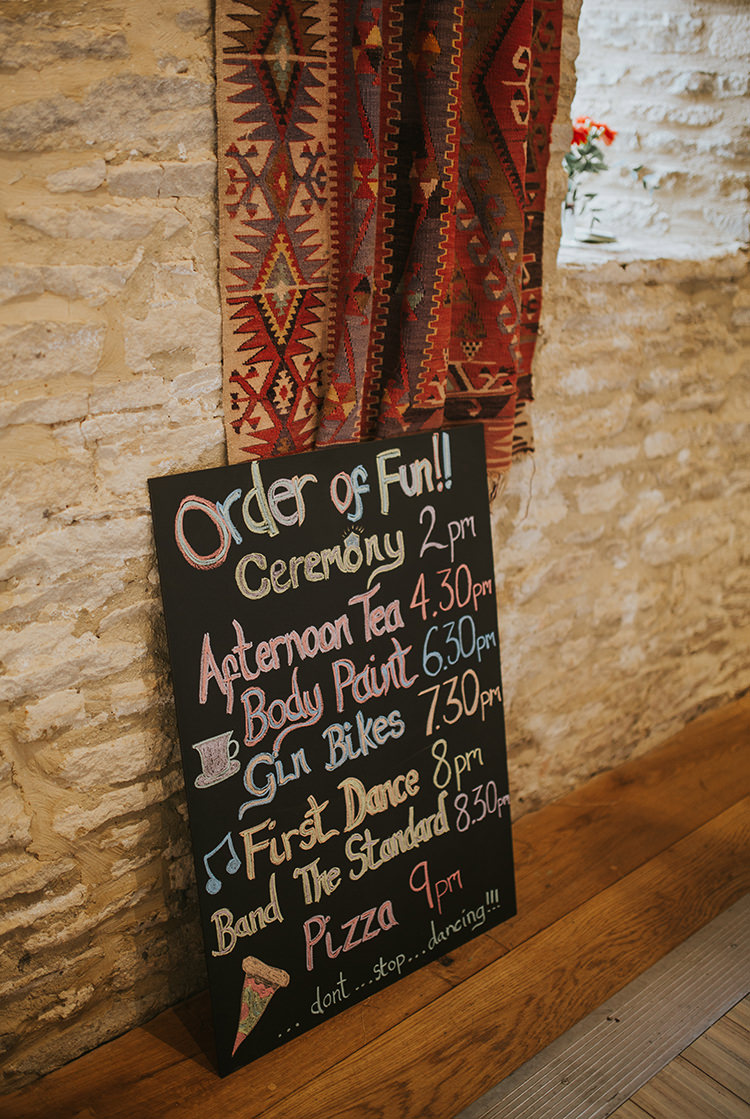 Order of Fun!!
Ceremony 2pm
Afternoon Tea 4.30pm
Body Paint 6.30pm
Gin Bikes 7.30pm
First Dance 8pm
Band The Standard 8.30pm
Pizza 9pm
... dont ... stop ... dancing!!!